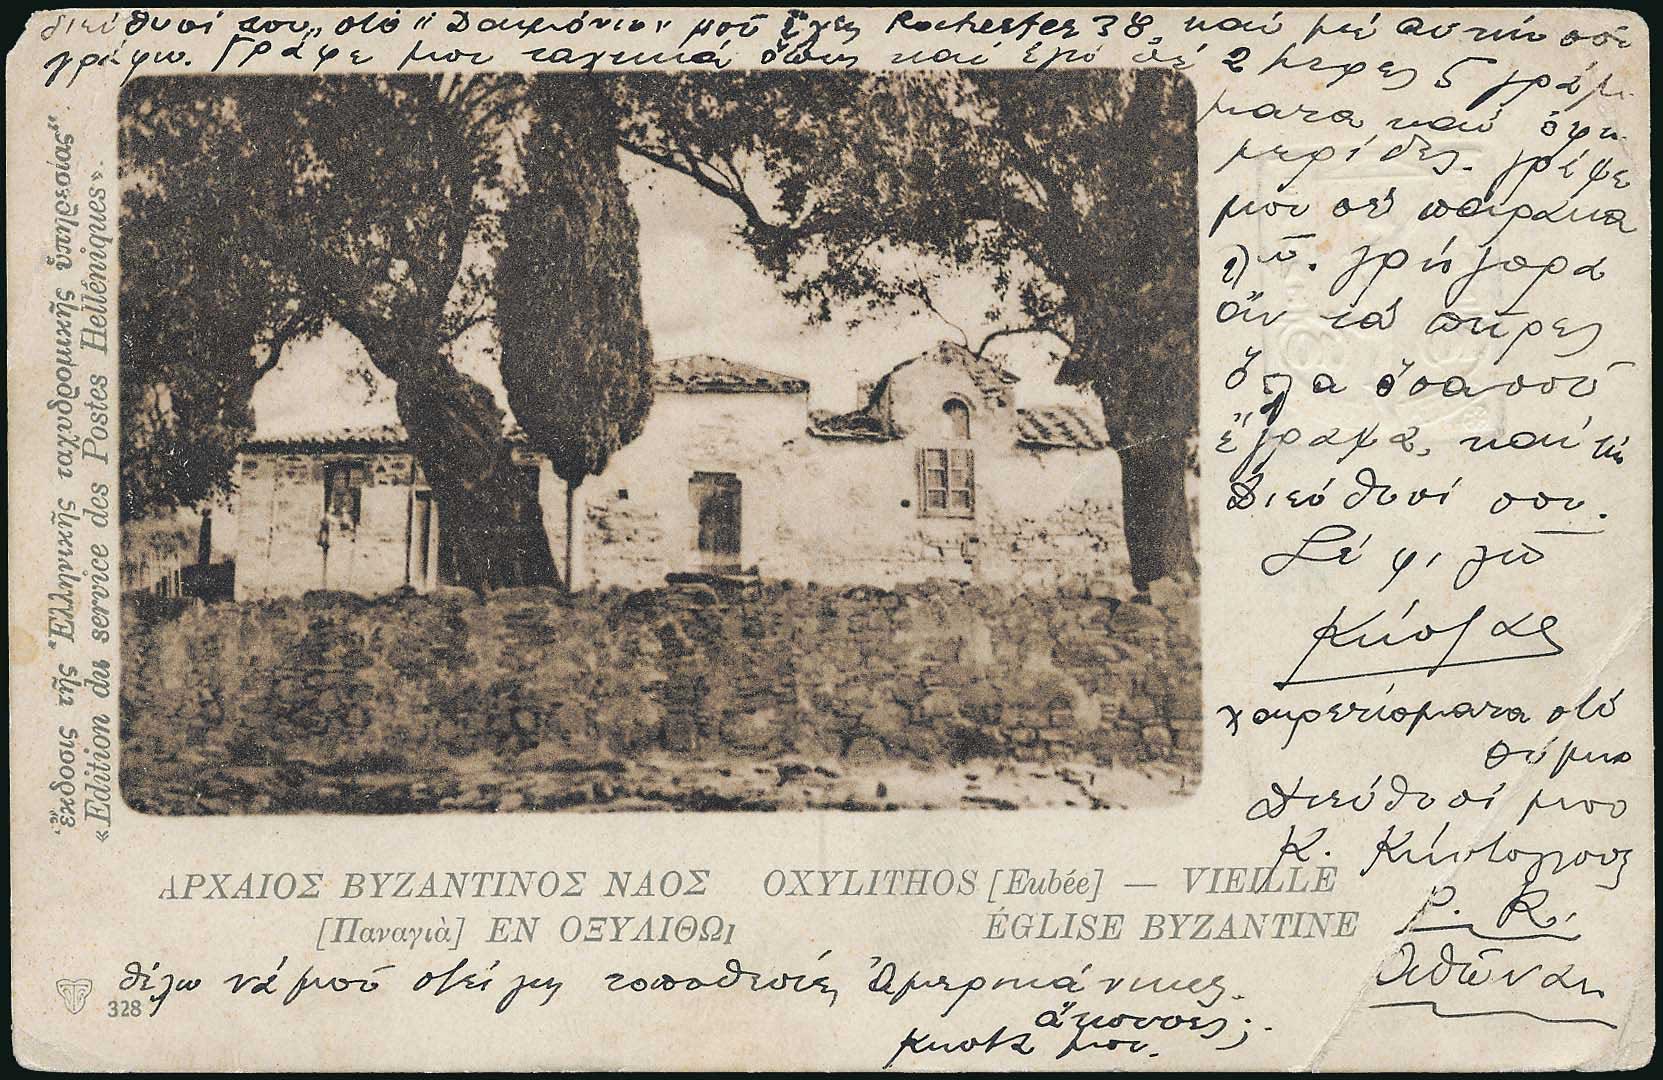 διευθυσί σου, στο "Δαιμόνιο" μού έχεις Rochester 38, καί μέ αυτήν σού
γράφω. Γράφε μου ταχτικά όπως καί εγώ σέ 2 μερες 5 γράμ
ματα καί έφη
μερίδες. γράψε
μου σέ παρακα
λώ. γρήγορα
άν τά πήρες
όλα όσα σού
έγραψα, καί τή
Διευθυσί σου.
Σέ φιλώ
Κώστας
χαιρετίσματα στό
θύμιο
Διευθυσί μου
Κ.
P. R.
Αθήναι
„Ἔκδοσις τῆς Ἑλληνικῆς ταχυδρομικῆς ὑπηρεσίας"
«Edition du service des Postes Helléniques».
ΑΡΧΑΙΟΣ ΒΥΖΑΝΤΙΝΟΣ ΝΑΟΣ
[Παναγιὰ] ΕΝ ΟΞΥΛΙΘΩι
OXYLITHOS [Eubée] — VIEILLE
ÉGLISE BYZANTINE
328
θέλω νά μού στείλης τοποθεσίες Αμερικάνικες.
άκουσες;
Κώστα μου.